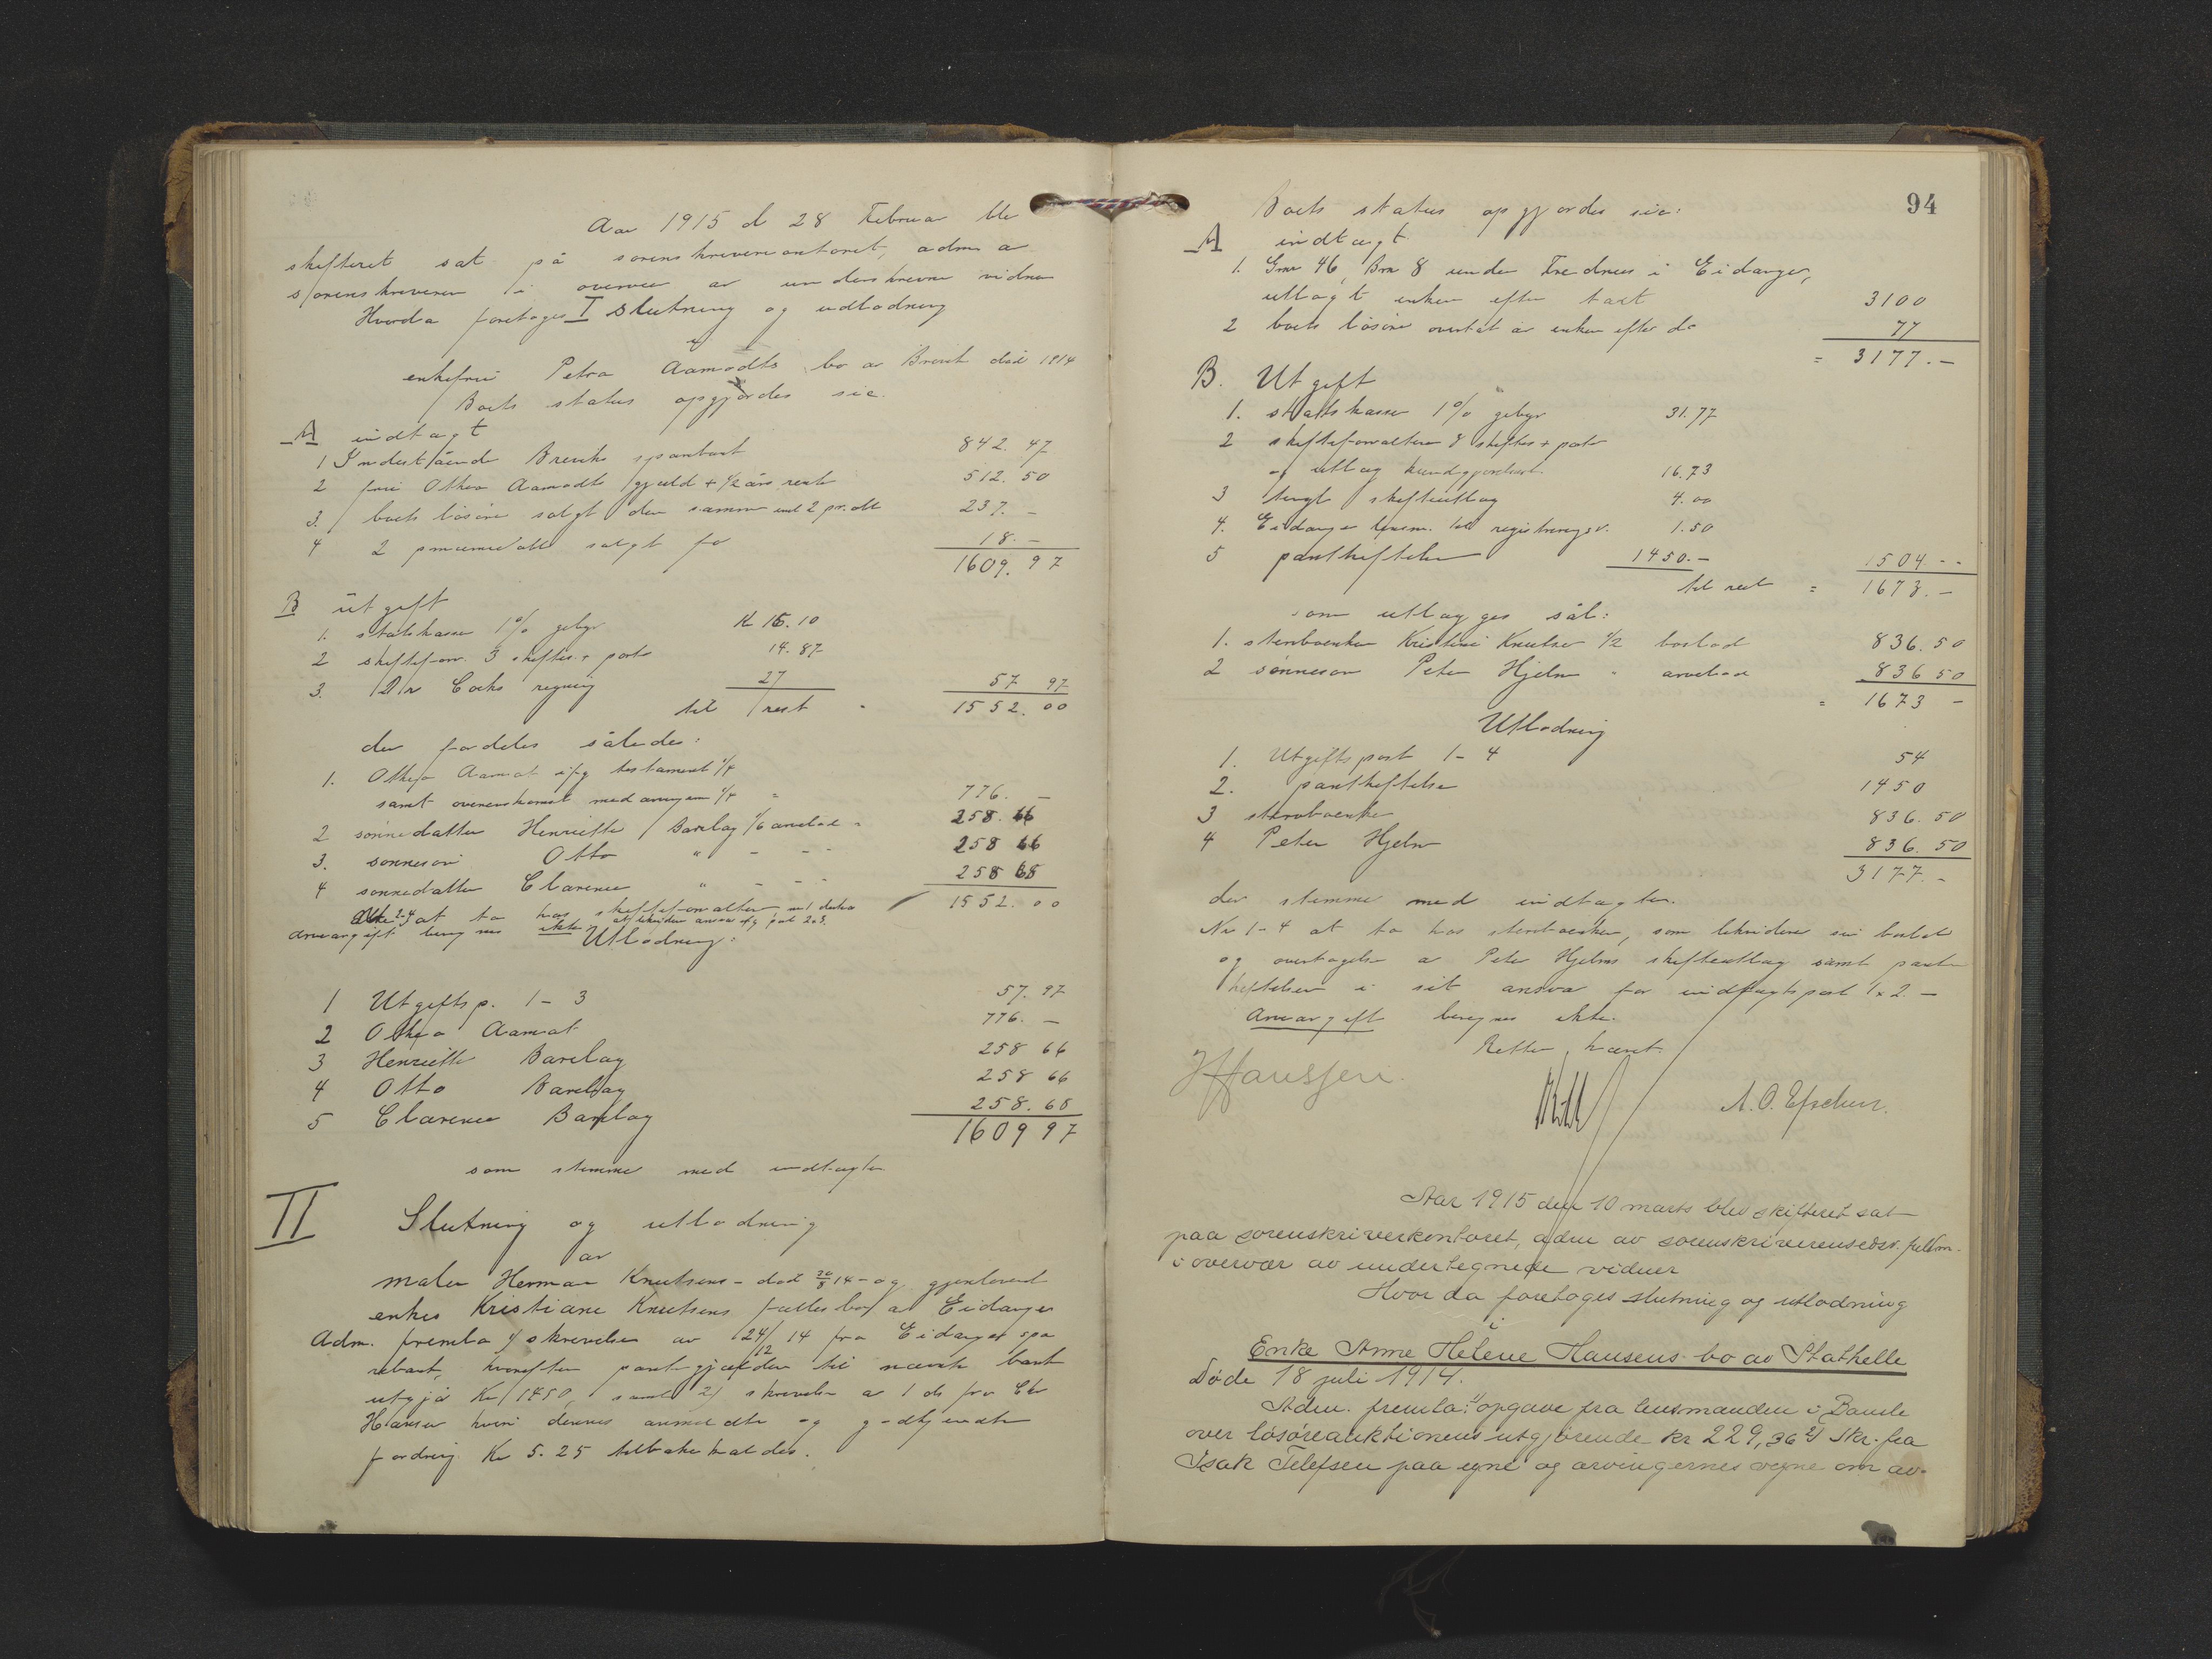 Aar 1915 d 28 Februar ble
skifteret sat på sorenskriverkontoret, adm a
sorenskriveren i overvær av underskrevne vidner
Hvorda foretoges I Slutning og udlodning
i
enkefru Petra Aamodts bo av Brevik død 1914
Boets status opgjordes sic.
A indtægt
1 Indestående Breviks sparebank 842. 47
2 frü Othea Aamodts gjæld + 1/2 års rente 512. 50
3. boets løsøre solgt den samme 237. -
4 2 solgt for 18. -
1609. 97
B ütgift
1. statskassen 1% gebyr K 16.10
2 skiftef-orv. 3 skiftes. + porto 14. 87
3. Dr Cocks regning 27 57 97
til rest 1552. 00
der fordeles således:
1. Othea Aamot ifg testament 1/4
samt overenskomst med arvingerne 1/4 = 776. -
2 sønnedatter Henriette Barclay 1/6 arvelod = 258. 66
3. sønnesøn Otto " - - - 258 66
4 sønnedatter Clarence " - - - 258 68
1552. 00
2-4 at ta hos skifteforvalteren
arveavgift beregnes ikke
Utlodning:
1 Utgiftsp. 1-3 57. 97
2 Othea Aamot 776. -
3 Henriette Barclay 258 66
4 Otto Barclay 258 66
5 Clarence Barclay 258. 68
1609 97
som stemmer med indtægten
II Slutning og utlodning
av
maler Herman Knutsens - død 26/8 14 - og gjenlevende
enkes Kristiane Knutsens fællesbo av Eidanger
Adm. fremla 1/ skrivelse av 24/12 14 fra Eidanger spa
rebank, hvorefter pantegjælden til nævnte bank
utgjør Kr 1450, samt 2/ skrivelse av 1 ds fra Chr
Hansen hvori dennes anmeldte og godkjendte
fordring Kr 5.25 tilbakekaldes.
94
Boets status opgjordes sic:
A indtægt
1. Gnr 46, Bnr 8 under i Eidanger,
utlagt enken efter takst 3100
2 boets løsøre overtat av enken efter do 77
= 3177.-
B. Utgift
1. statskassen 1% gebyr 31.77
2 skifteforvalteren 8 skiftes + porto
og utlæg kundgjørelser. 16.73
3 tingl skifteutlæg 4.00
4. Eidanger lensm. for registreringsv. 1.50
5 pantheftelser 1450.- 1504 --
til rest = 1673.-
som utlægges sål:
1. stervboenken Kristine Knutsen 1/2 boslod 836. 50
2 sønnesøn Peter Hjelm " arvelod 836 50
= 1673 -
Utlodning
1. Utgiftspost 1-4 54
2. pantheftelse 1450
3 stervboenken 836. 50
4 Peter Hjelm 836. 50
3177.-
der stemmer med indtægten.
Nr 1-4 at ta hos stervboenken, som likviderer sin boslod
og overtagelse av Peter Hjelms skifteutlæg samt pant
heftelsen i sit ansvar for indtægtspost 1 x 2. -
Arveavgift beregnes ikke.
Retten hævet.
H Hanssen.
A. O. Efschen.
Aar 1915 den 10 marts blev skifteret sat
paa sorenskriverkontoret, adm av sorenskriverens edsv. fuldm.
i overvær av undertegnede vidner
Hvor da foretoges slutning og utlodning
i
Enke Anne Helene Hansens bo av Stathelle
Døde 18 juli 1914.
Adm. fremla: 1) opgave fra lensmanden i Bamle
over løsøreauktionens utgjørende kr 229,36 2) Skr. fra
Isak Tellefsen paa egne og arvingernes vegne om av-